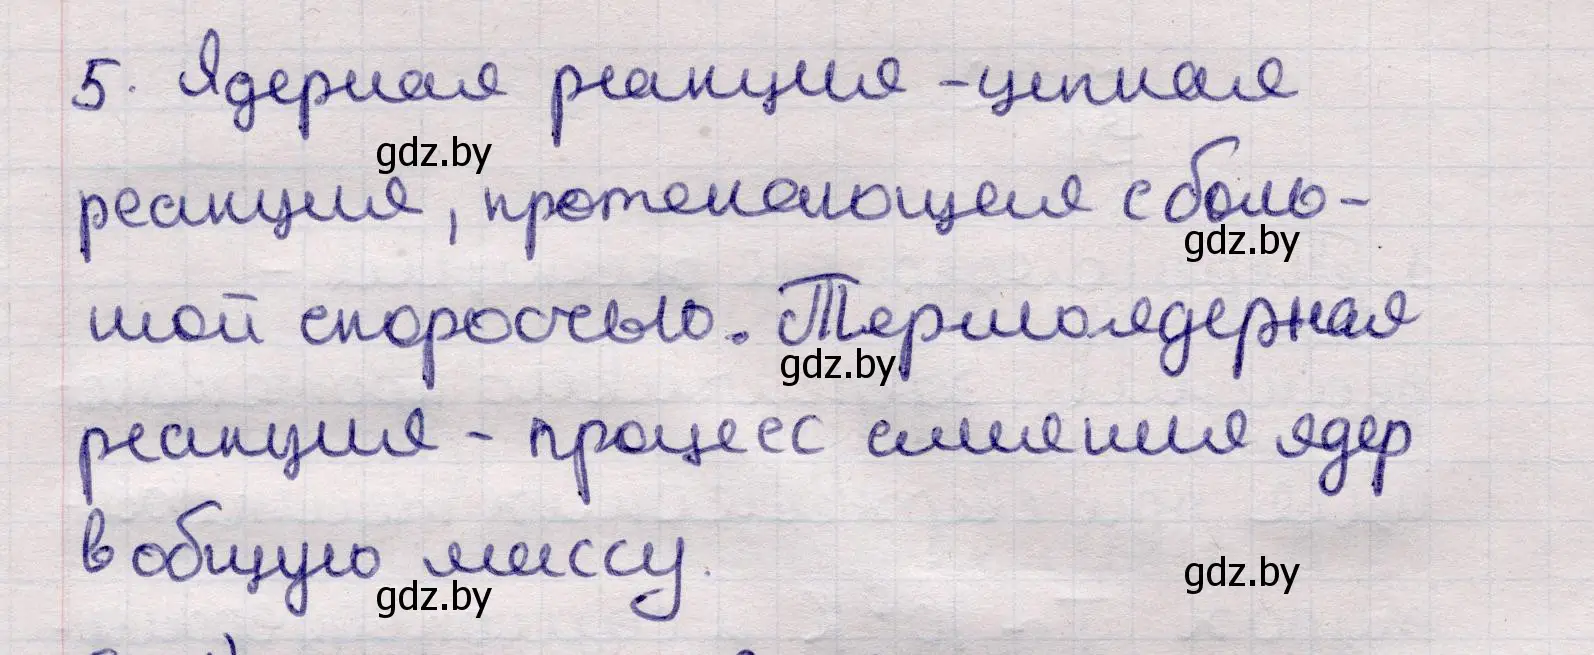 5. Ядерная реакция - цепная
gdz.by
реакция, протекающая с боль-
gdz.by
шой скоростью. Термоядерная
gdz.by
реакция - процесс слияния ядер
в общую массу.
gdz.by
gdz.by